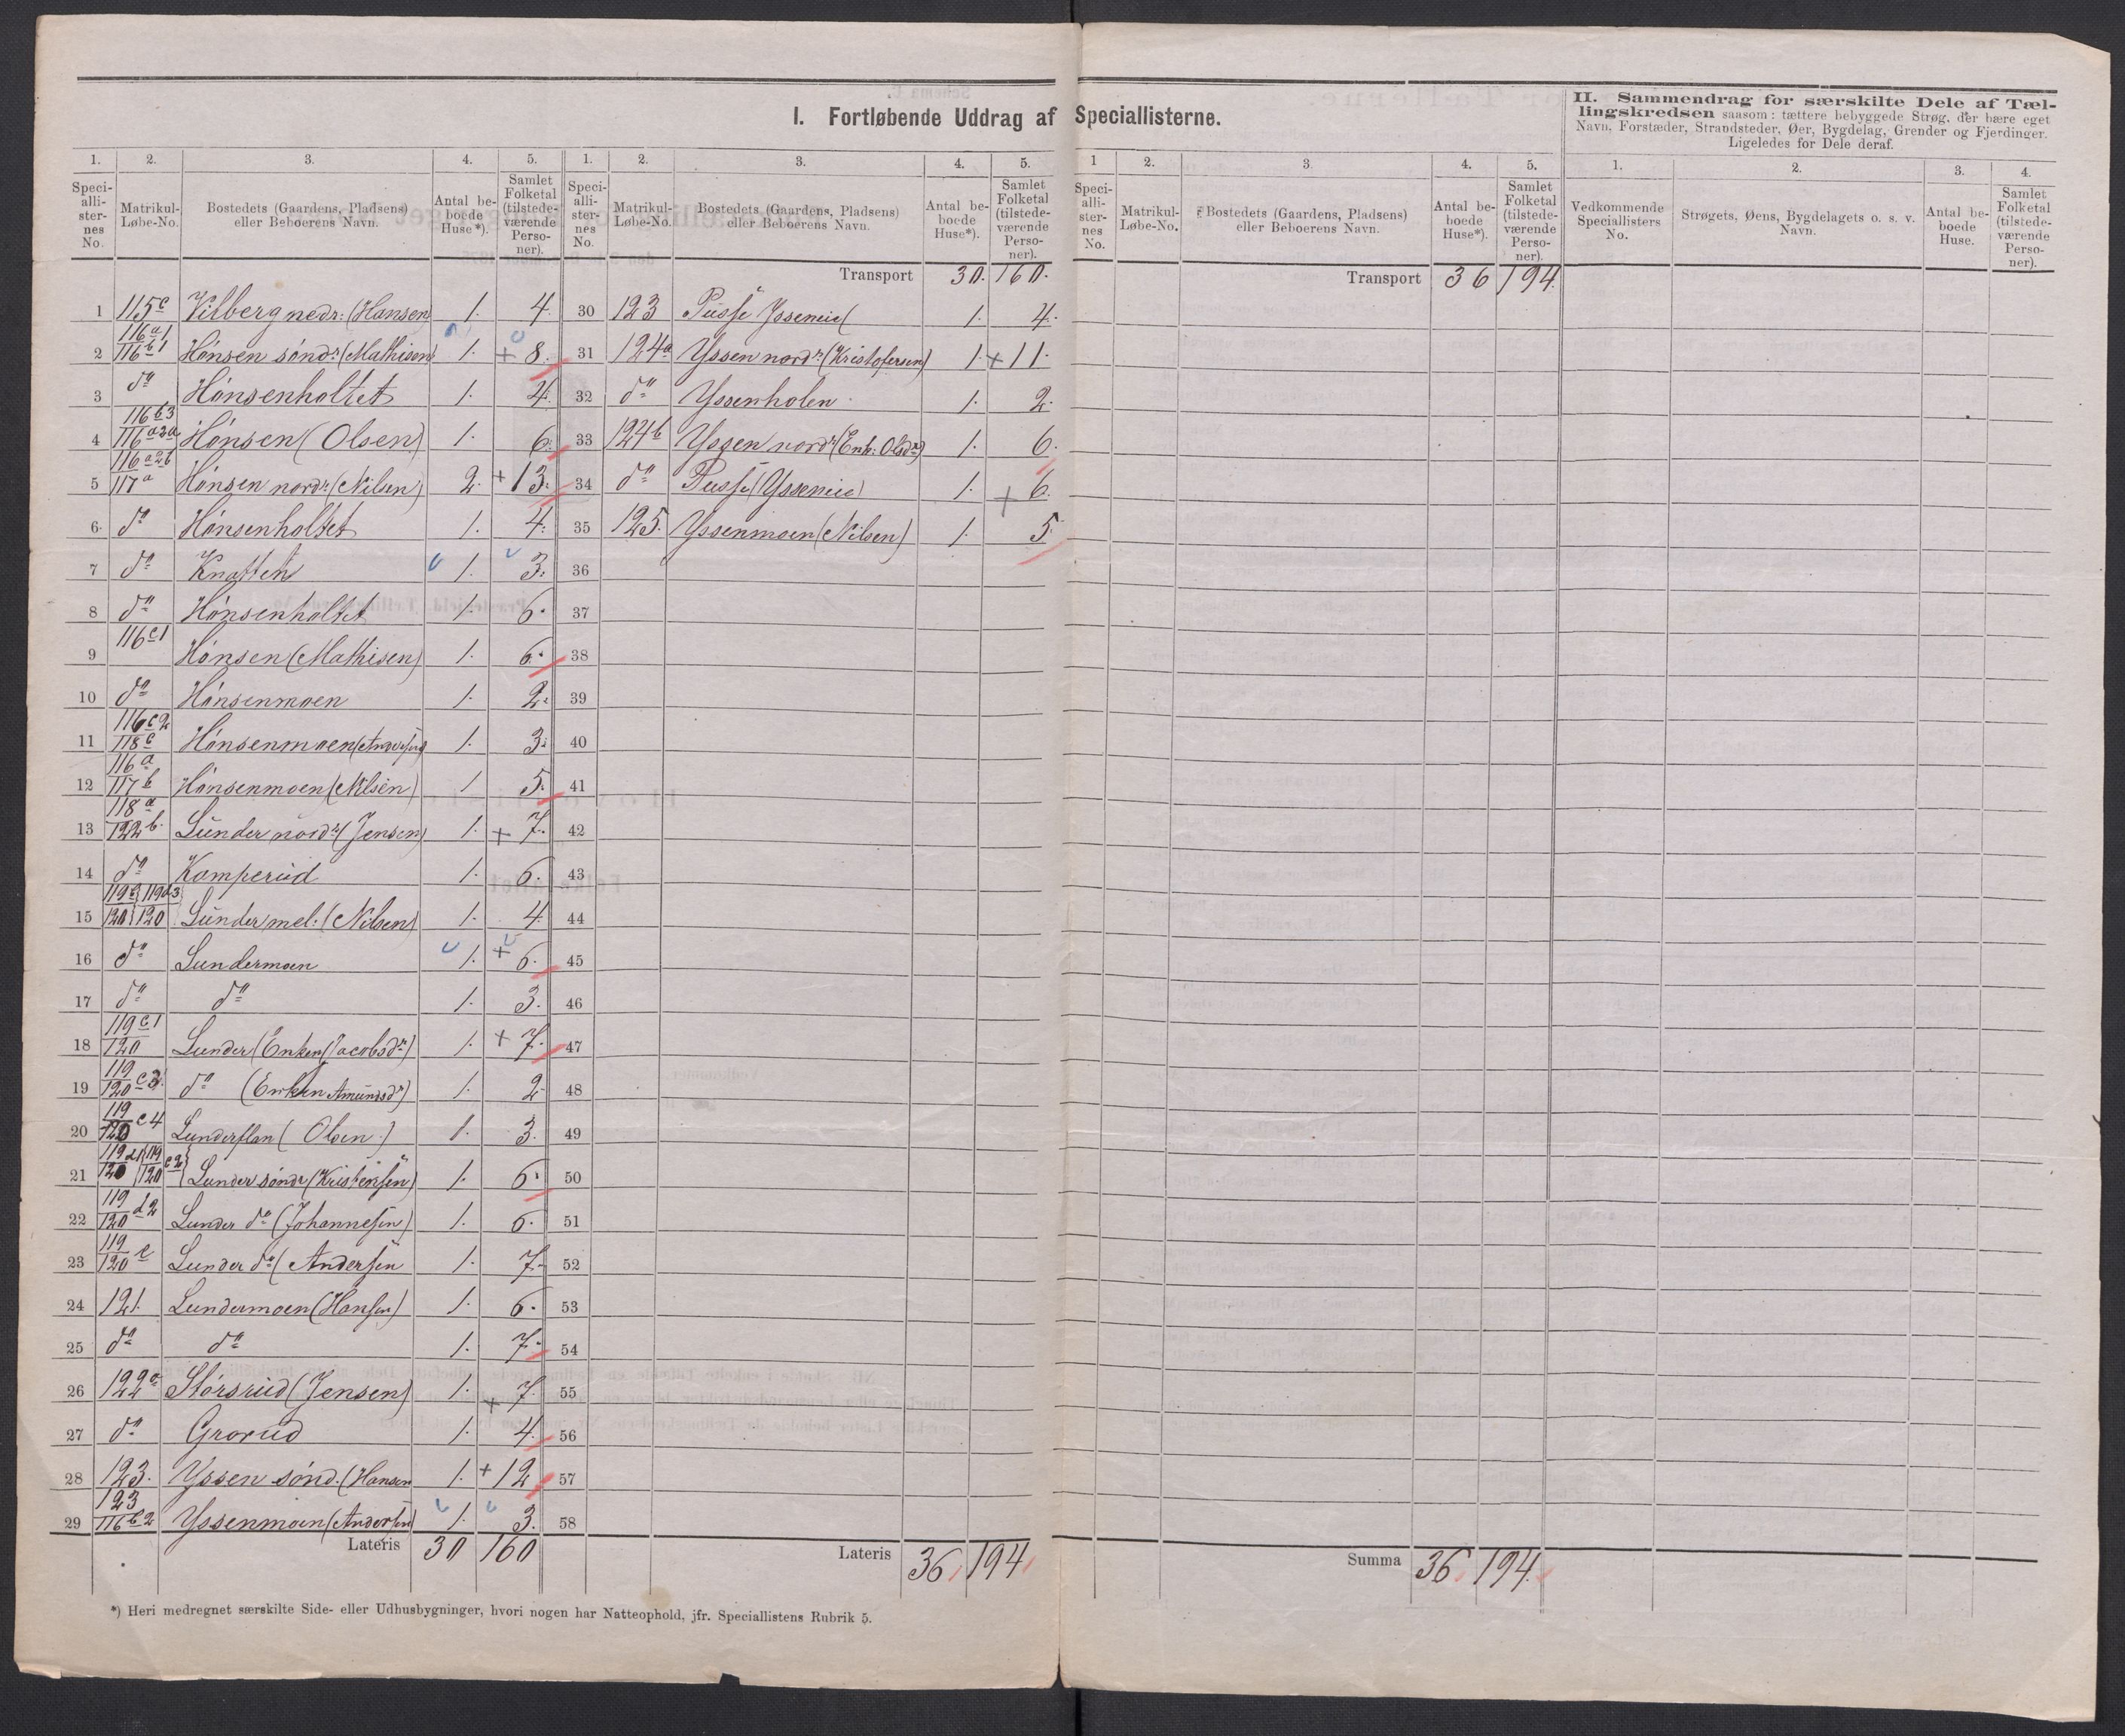 I. Fortløbende Uddrag af Speciallisterne.
II. Sammendrag for særskilte Dele af Tællingskredsen saasom: tættere bebyggede Strøg, der bære eget Navn, Forstæder, Strandsteder, Øer, Bygdelag, Grender og Fjerdinger. Ligeledes for Dele deraf.
1. 2. 3. 4. 5. 1. 2. 3. 4. 5. 1 2. 3. 4. 5. 1. 2. 3. 4.
Speciallisternes No. Matrikul-Løbe-No. Bostedets (Gaardens, Pladsens) eller Beboerens Navn. Antal beboede Huse*). Samlet Folketal (tilstedeværende Personer).
Speciallisternes No. Matrikul-Løbe-No. Bostedets (Gaardens, Pladsens) eller Beboerens Navn. Antal beboede Huse*). Samlet Folketal (tilstedeværende Personer).
Speciallisternes No. Matrikul-Løbe-No. Bostedets (Gaardens, Pladsens) eller Beboerens Navn. Antal beboede Huse*). Samlet Folketal (tilstedeværende Personer).
Vedkommende Speciallisters No. Strøgets, Øens, Bygdelagets o. s. v. Navn. Antal beboede Huse. Samlet Folketal (tilstedeværende Personer).
Transport 30. 160.
Transport 36 194.
1 115c Vilberg nedr: (Hansen 1. 4.
2 116a1 116b1 Hønsen søndr (Mathisen) 1. + 8.
3 do Hønsenholtet 1. 4.
4 116b3 116a3a Hønsen (Olsen) 1. 6.
5 116a2b 117a Hønsen nordr (Nilsen) 2. + 13.
6 do Hønsenholtet 1. 4.
7 do Knatten 1. 3.
8 do Hønsenholtet 1. 6.
9 116c1 Hønsen (Mathisen) 1. 6.
10 do Hønsenmoen 1. 2.
11 116c2 118c Hønsenmoen 1. 3.
12 116a 117b Hønsenmoen (Nilsen) 1 5.
13 118a 122b. Lunder nordr (Jensen) 1. + 7.
14 do Kamperud 1. 6.
15 120 120 Lunder mel: (Nilsen) 1. 4
16 do Lundermoen 1. + 6.
17 do do 1. 3.
18 119c1 120 Lunder (Enken Jacobsdr) 1. + 7.
19 119 120 c3 do (Enken Amundsdr) 1. 2
20 119 120 c4 Lunderflan (Olsen.) 1. 3.
21 120 120 c2 Lunder søndr (Kristensen) 1. 6.
22 119 120 d2 Lunder do (Johannesen) 1. 6.
23 119 120 e Lunder do (Andersen 1. 7.
24 121. Lundermoen (Hansen) 1. 6.
25 do do 1. 7.
26 122a Størsrud (Jensen) 1. + 7.
27 do Grorud 1. 4.
28 123. Yssen sønd. (Hansen 1. + 12
29 123 116b2 Yssenmoen (Andersen) 1. 3.
Lateris 30 160
30 123 Pusse Ysseneie 1. 4.
31 124a Yssen nordr (Kristofersen) 1. + 11.
32 do Yssenholen 1. 2.
33 124b Yssen nordr (Enk: Olsdr) 1. 6.
34 do Pusse (Ysseneie) 1. + 6.
35 125. Yssenmoen (Nilsen) 1. 5.
36
37
38
39
40
41
42
43
44
45
46
47
48
49
50
51
52
53
54
55
56
57
58
Lateris 36 194
Summa 36 194.
*) Heri medregnet særskilte Side- eller Udhusbygninger, hvori nogen har Natteophold, jfr. Speciallistens Rubrik 5.